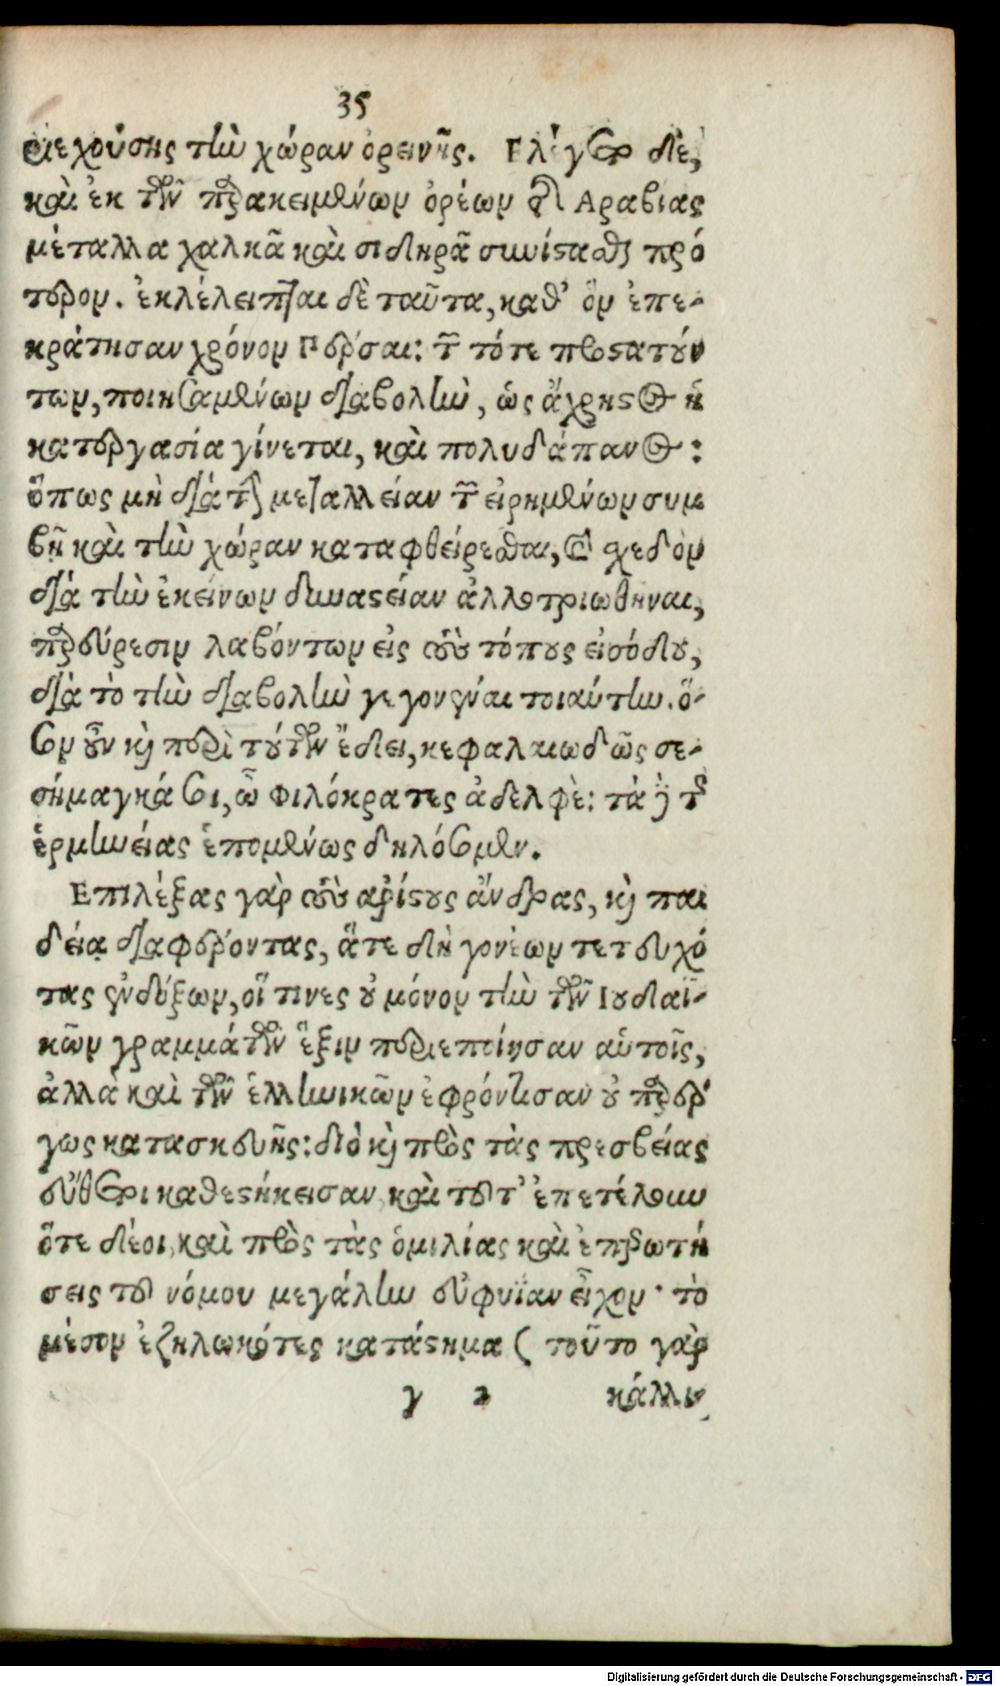 35
διεχούσης τὴν χώραν ὀρεινῆς. Ελέγετο δὲ,
καὶ ἐκ τῶν παρακειμένων ὀρέων τῆς Αραβίας
μέταλλα χαλκᾶ καὶ σιδηρᾶ συνίστασθαι πρό
τερον. ἐκλέλειπται δὲ ταῦτα, καθ' ὃν ἐπε-
κράτησαν χρόνον Πέρσαι: τῶν τότε προστατούν
των, ποιησαμένων διαβολὴν, ὡς ἄχρηστος ἡ
κατεργασία γίνεται, καὶ πολυδάπανος:
ὅπως μὴ διὰ τὴν μεταλλείαν τῶν εἰρημένων συμ
βῇ καὶ τὴν χώραν καταφθείρεσθαι, καὶ σχεδὸν
διὰ τὴν ἐκείνων δυναστείαν ἀλλοτριωθῆναι,
παρεύρεσιν λαβόντων εἰς τοὺς τόπους εἰσόδου,
διὰ τὸ τὴν διαβολὴν γεγονέναι τοιαύτην. ὅ-
σον οὖν καὶ περὶ τούτων ἔδει, κεφαλαιωδῶς σε-
σήμαγκά σοι, ὦ Φιλόκρατες ἀδελφὲ: τὰ δὲ τῆς
ἑρμηνείας ἑπομένως δηλώσομεν.
Επιλέξας γὰρ τοὺς ἀρίστους ἄνδρας, καὶ παι
δείᾳ διαφέροντας, ἅτε δὴ γονέων τετευχό
τας ἐνδόξων, οἵ τινες οὐ μόνον τὴν τῶν Ιουδαϊ-
κῶν γραμμάτων ἕξιν περιεποίησαν αὑτοῖς,
ἀλλὰ καὶ τῶν ἑλληνικῶν ἐφρόντισαν οὐ παρέρ
γως κατασκευῆς: διὸ καὶ πρὸς τὰς πρεσβείας
εὔθετοι καθεστήκεισαν, καὶ τοῦτ' ἐπετέλουν
ὅτε δέοι, καὶ πρὸς τὰς ὁμιλίας καὶ ἐπερωτή
σεις τοῦ νόμου μεγάλην εὐφυΐαν εἶχον· τὸ
μέσον ἐζηλωκότες κατάστημα ( τοῦτο γὰρ
γ 2 κάλλι
Digitalisierung gefördert durch die Deutsche Forschungsgemeinschaft - DFG